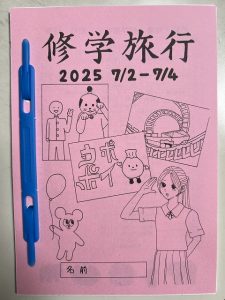 修学旅行
2025 7/2-7/4
名前